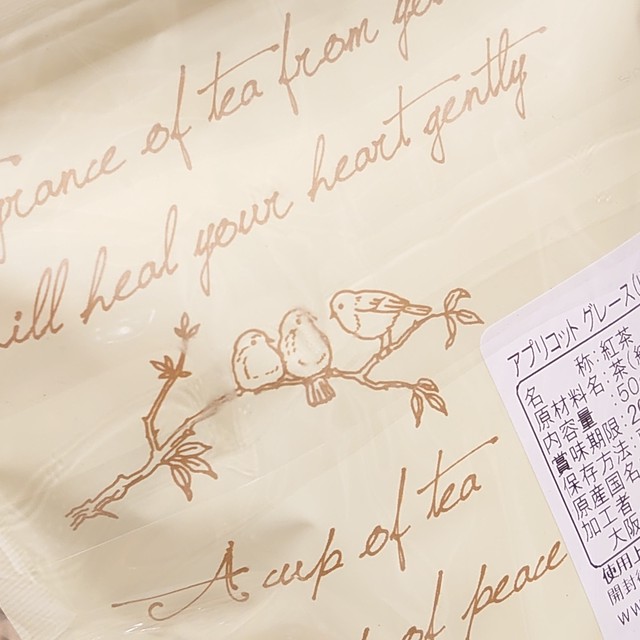 of tea from
heal your heart gently
A cup of tea
of peace
アプリコット グレース
名 称:紅茶
原材料名:茶
内容量:50
賞味期限:20
保存方法:
原産国名
加工者
大阪
使用上
開封